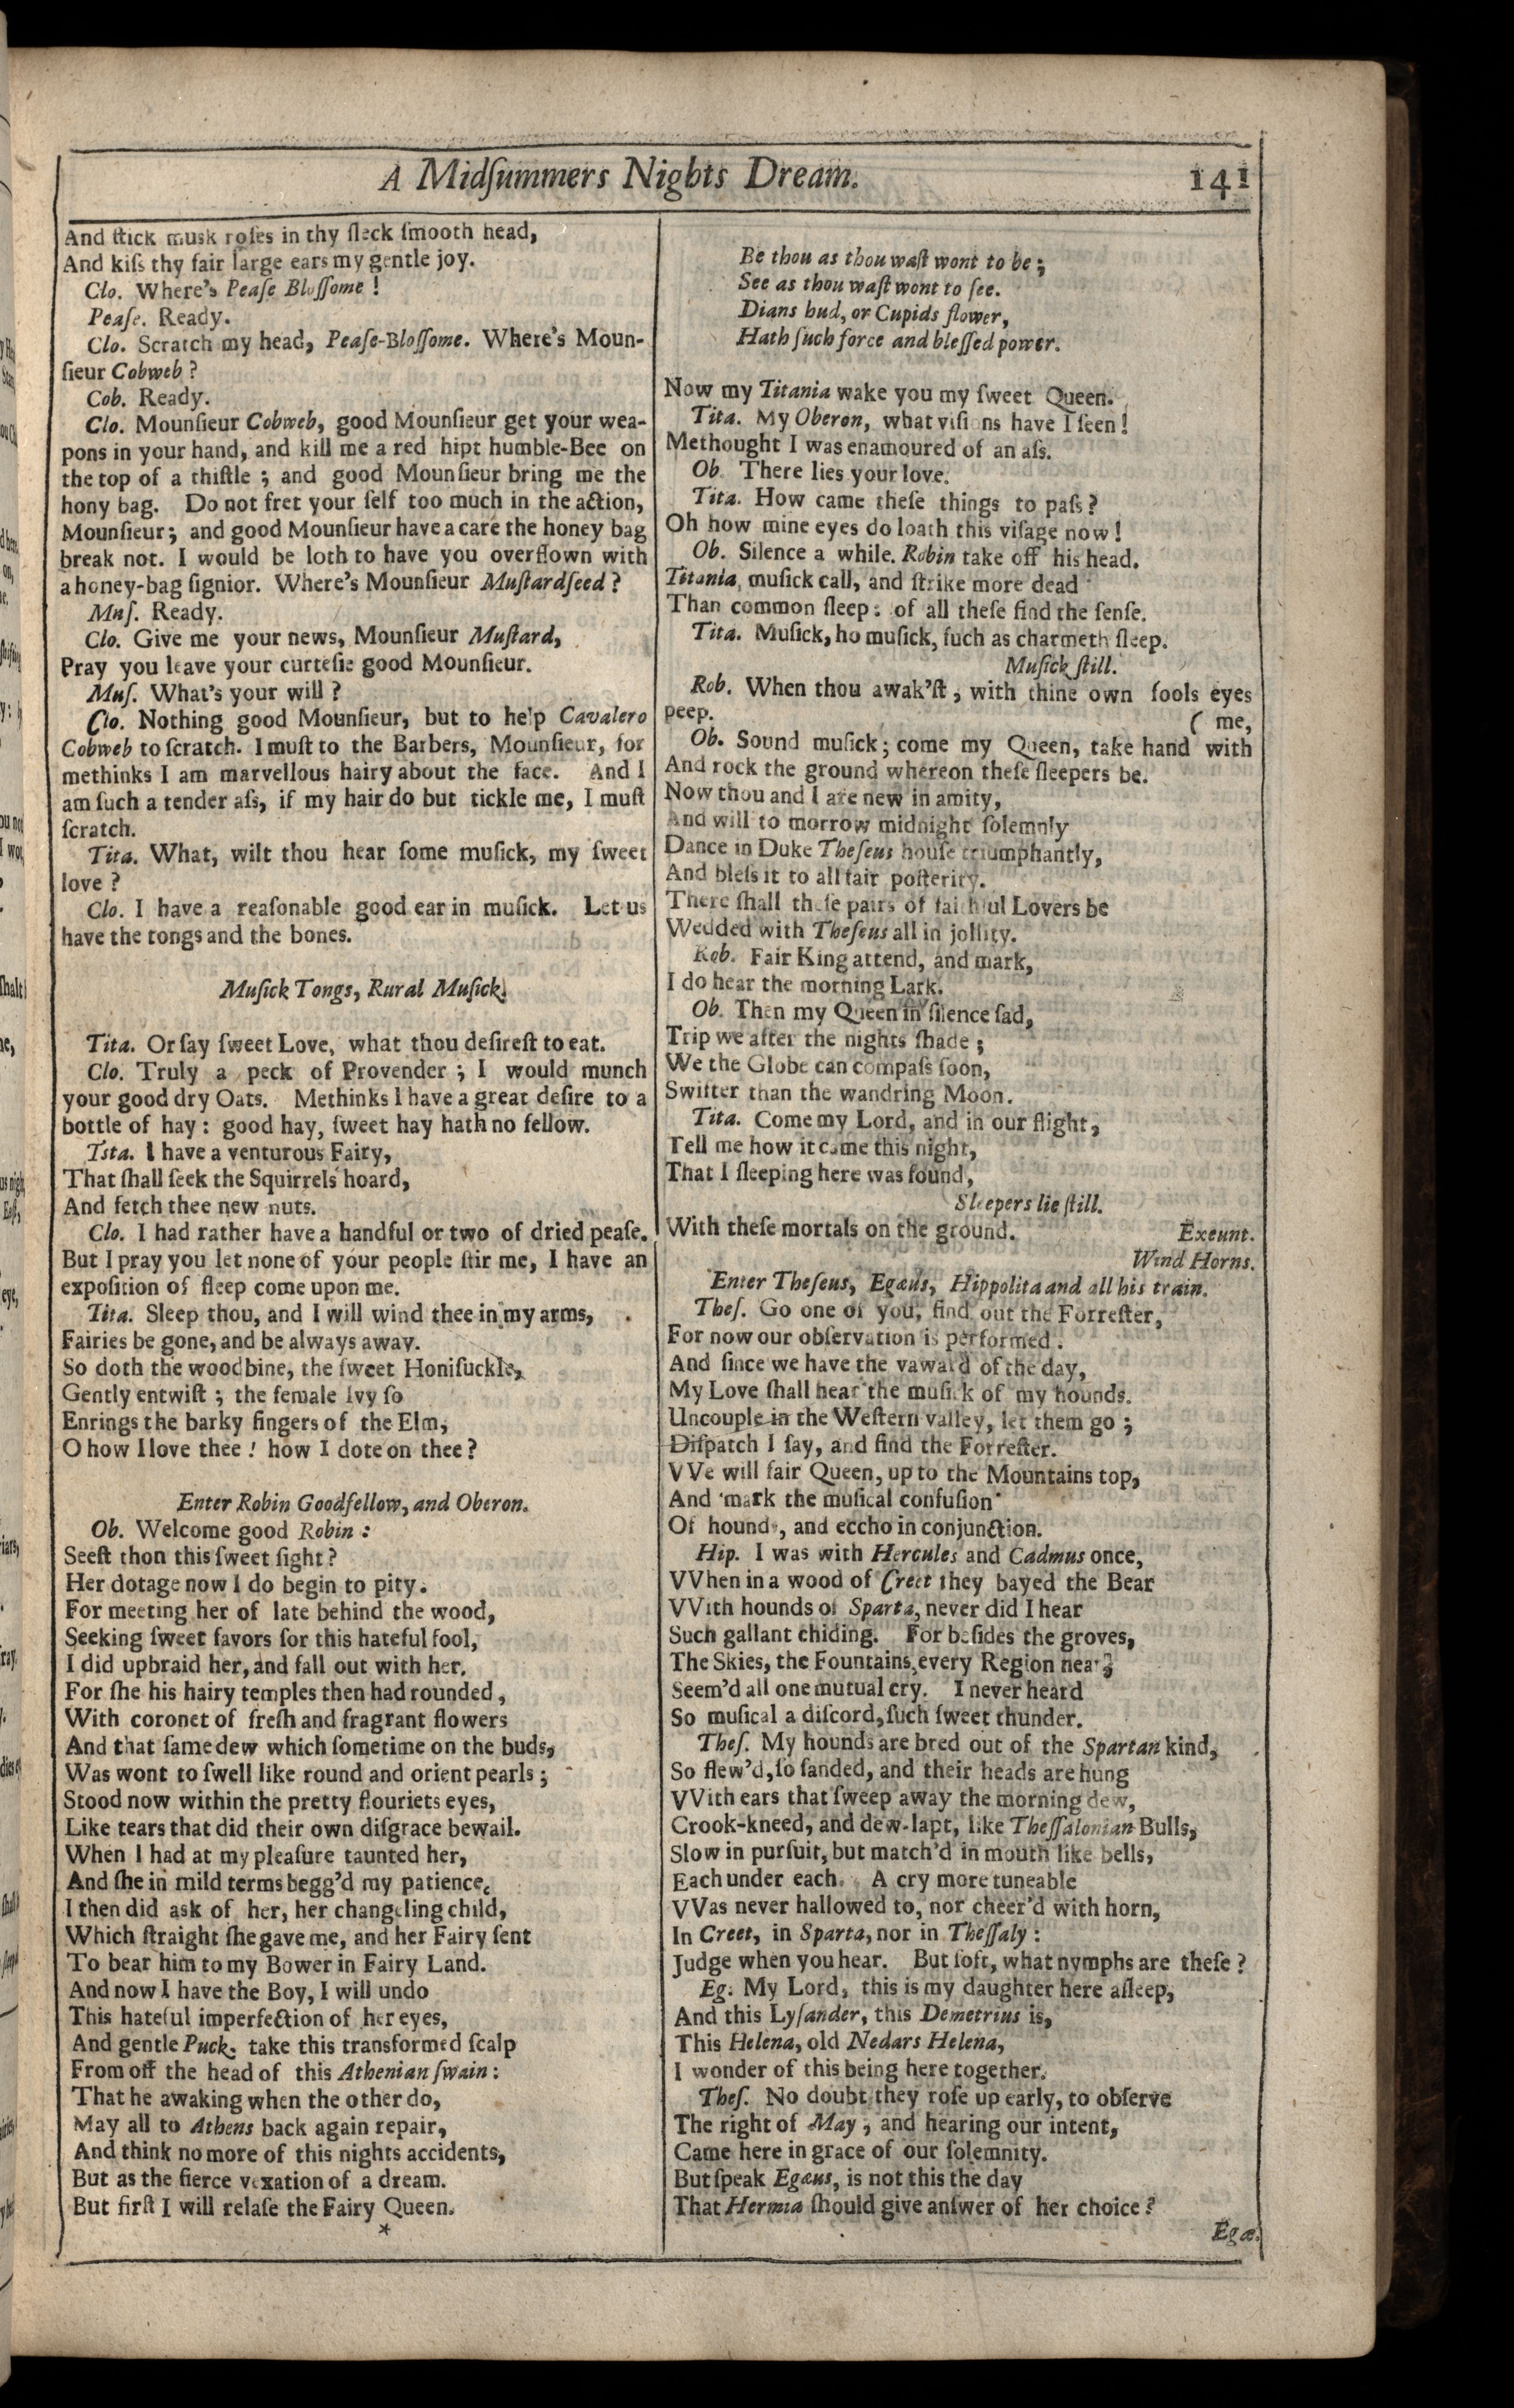 A Midſummers Nights Dream. 141
And ſtick musk roſes in thy ſleck ſmooth head,
And kiſs thy fair large ears my gentle joy.
Clo. Where's Peaſe Bloſſome !
Peaſe. Ready.
Clo. Scratch my head, Peaſe-Bloſſome. Where's Moun-
ſieur Cobweb ?
Cob. Ready.
Clo. Mounſieur Cobweb, good Mounſieur get your wea-
pons in your hand, and kill me a red hipt humble-Bee on
the top of a thiſtle ; and good Mounſieur bring me the
hony bag. Do not fret your ſelf too much in the action,
Mounſieur; and good Mounſieur have a care the honey bag
break not. I would be loth to have you overflown with
a honey-bag ſignior. Where's Mounſieur Muſtardſeed ?
Muſ. Ready.
Clo. Give me your news, Mounſieur Muſtard,
Pray you leave your curteſie good Mounſieur.
Muſ. What's your will ?
Clo. Nothing good Mounſieur, but to help Cavalero
Cobweb to ſcratch. I muſt to the Barbers, Mounſieur, for
methinks I am marvellous hairy about the face. And I
am ſuch a tender aſs, if my hair do but tickle me, I muſt
ſcratch.
Tita. What, wilt thou hear ſome muſick, my ſweet
love ?
Clo. I have a reaſonable good ear in muſick. Let us
have the tongs and the bones.
Muſick Tongs, Rural Muſick.
Tita. Or ſay ſweet Love, what thou deſireſt to eat.
Clo. Truly a peck of Provender ; I would munch
your good dry Oats. Methinks I have a great deſire to a
bottle of hay : good hay, ſweet hay hath no fellow.
Tsta. I have a venturous Fairy,
That ſhall ſeek the Squirrels hoard,
And fetch thee new nuts.
Clo. I had rather have a handful or two of dried peaſe.
But I pray you let none of your people ſtir me, I have an
expoſition of ſleep come upon me.
Tita. Sleep thou, and I will wind thee in my arms,
Fairies be gone, and be always away.
So doth the woodbine, the ſweet Honiſuckle,
Gently entwiſt ; the female Ivy ſo
Enrings the barky fingers of the Elm,
O how I love thee ! how I dote on thee ?
Enter Robin Goodfellow, and Oberon.
Ob. Welcome good Robin :
Seeſt thon this ſweet ſight ?
Her dotage now I do begin to pity.
For meeting her of late behind the wood,
Seeking ſweet favors for this hateful fool,
I did upbraid her, and fall out with her.
For ſhe his hairy temples then had rounded,
With coronet of freſh and fragrant flowers
And that ſame dew which ſometime on the buds,
Was wont to ſwell like round and orient pearls ;
Stood now within the pretty flouriets eyes,
Like tears that did their own diſgrace bewail.
When I had at my pleaſure taunted her,
And ſhe in mild terms begg'd my patience,
I then did ask of her, her changeling child,
Which ſtraight ſhe gave me, and her Fairy ſent
To bear him to my Bower in Fairy Land.
And now I have the Boy, I will undo
This hateful imperfection of her eyes,
And gentle Puck, take this transformed ſcalp
From off the head of this Athenian ſwain :
That he awaking when the other do,
May all to Athens back again repair,
And think no more of this nights accidents,
But as the fierce vexation of a dream.
But firſt I will relaſe the Fairy Queen.
*
Be thou as thou waſt wont to be ;
See as thou waſt wont to ſee.
Dians bud, or Cupids flower,
Hath ſuch force and bleſſed power.
Now my Titania wake you my ſweet Queen.
Tita. My Oberon, what viſions have I ſeen !
Methought I was enamoured of an aſs.
Ob. There lies your love.
Tita. How came theſe things to paſs ?
Oh how mine eyes do loath this viſage now !
Ob. Silence a while. Robin take off his head.
Titania, muſick call, and ſtrike more dead
Than common ſleep : of all theſe find the ſenſe.
Tita. Muſick, ho muſick, ſuch as charmeth ſleep.
Muſick ſtill.
Rob. When thou awak'ſt, with thine own fools eyes
peep. ( me,
Ob. Sound muſick ; come my Queen, take hand with
And rock the ground whereon theſe ſleepers be.
Now thou and I are new in amity,
And will to morrow midnight ſolemnly
Dance in Duke Theſeus houſe triumphantly,
And bleſs it to all fair poſterity.
There ſhall theſe pairs of faithful Lovers be
Wedded with Theſeus all in jollity.
Rob. Fair King attend, and mark,
I do hear the morning Lark.
Ob. Then my Queen in ſilence ſad,
Trip we after the nights ſhade ;
We the Globe can compaſs ſoon,
Swifter than the wandring Moon.
Tita. Come my Lord, and in our flight,
Tell me how it came this night,
That I ſleeping here was found,
Sleepers lie ſtill.
With theſe mortals on the ground. Exeunt.
Wind Horns.
Enter Theſeus, Egæus, Hippolita and all his train.
Theſ. Go one of you, find out the Forreſter,
For now our obſervation is performed.
And ſince we have the vaward of the day,
My Love ſhall hear the muſick of my hounds.
Uncouple in the Weſtern valley, let them go ;
Diſpatch I ſay, and find the Forreſter.
VVe will fair Queen, up to the Mountains top,
And mark the muſical confuſion
Of hounds, and eccho in conjunction.
Hip. I was with Hercules and Cadmus once,
VVhen in a wood of Creet they bayed the Bear
VVith hounds of Sparta, never did I hear
Such gallant chiding. For beſides the groves,
The Skies, the Fountains, every Region near,
Seem'd all one mutual cry. I never heard
So muſical a diſcord, ſuch ſweet thunder.
Theſ. My hounds are bred out of the Spartan kind,
So flew'd, ſo ſanded, and their heads are hung
VVith ears that ſweep away the morning dew,
Crook-kneed, and dew-lapt, like Theſſalonian Bulls,
Slow in purſuit, but match'd in mouth like bells,
Each under each. A cry more tuneable
VVas never hallowed to, nor cheer'd with horn,
In Creet, in Sparta, nor in Theſſaly :
Judge when you hear. But ſoft, what nymphs are theſe ?
Eg. My Lord, this is my daughter here aſleep,
And this Lyſander, this Demetrius is,
This Helena, old Nedars Helena,
I wonder of this being here together.
Theſ. No doubt they roſe up early, to obſerve
The right of May, and hearing our intent,
Came here in grace of our ſolemnity.
But ſpeak Egæus, is not this the day
That Hermia ſhould give anſwer of her choice ?
Egæ.